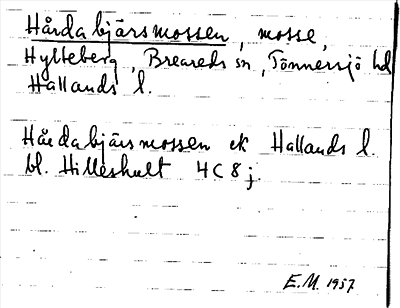 Hårdabjärsmossen, mosse,
Hylteberg, Breareds sn, Tönnersjö hd
Hallands l.
Hårdabjärsmossen ek Hallands l.
bl. Hilleshult 4C8j.
E.M. 1957